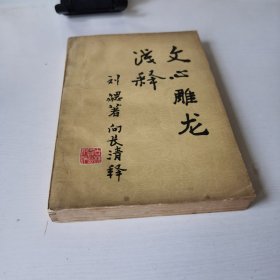 文心雕龙
浅释
刘勰著向长清释